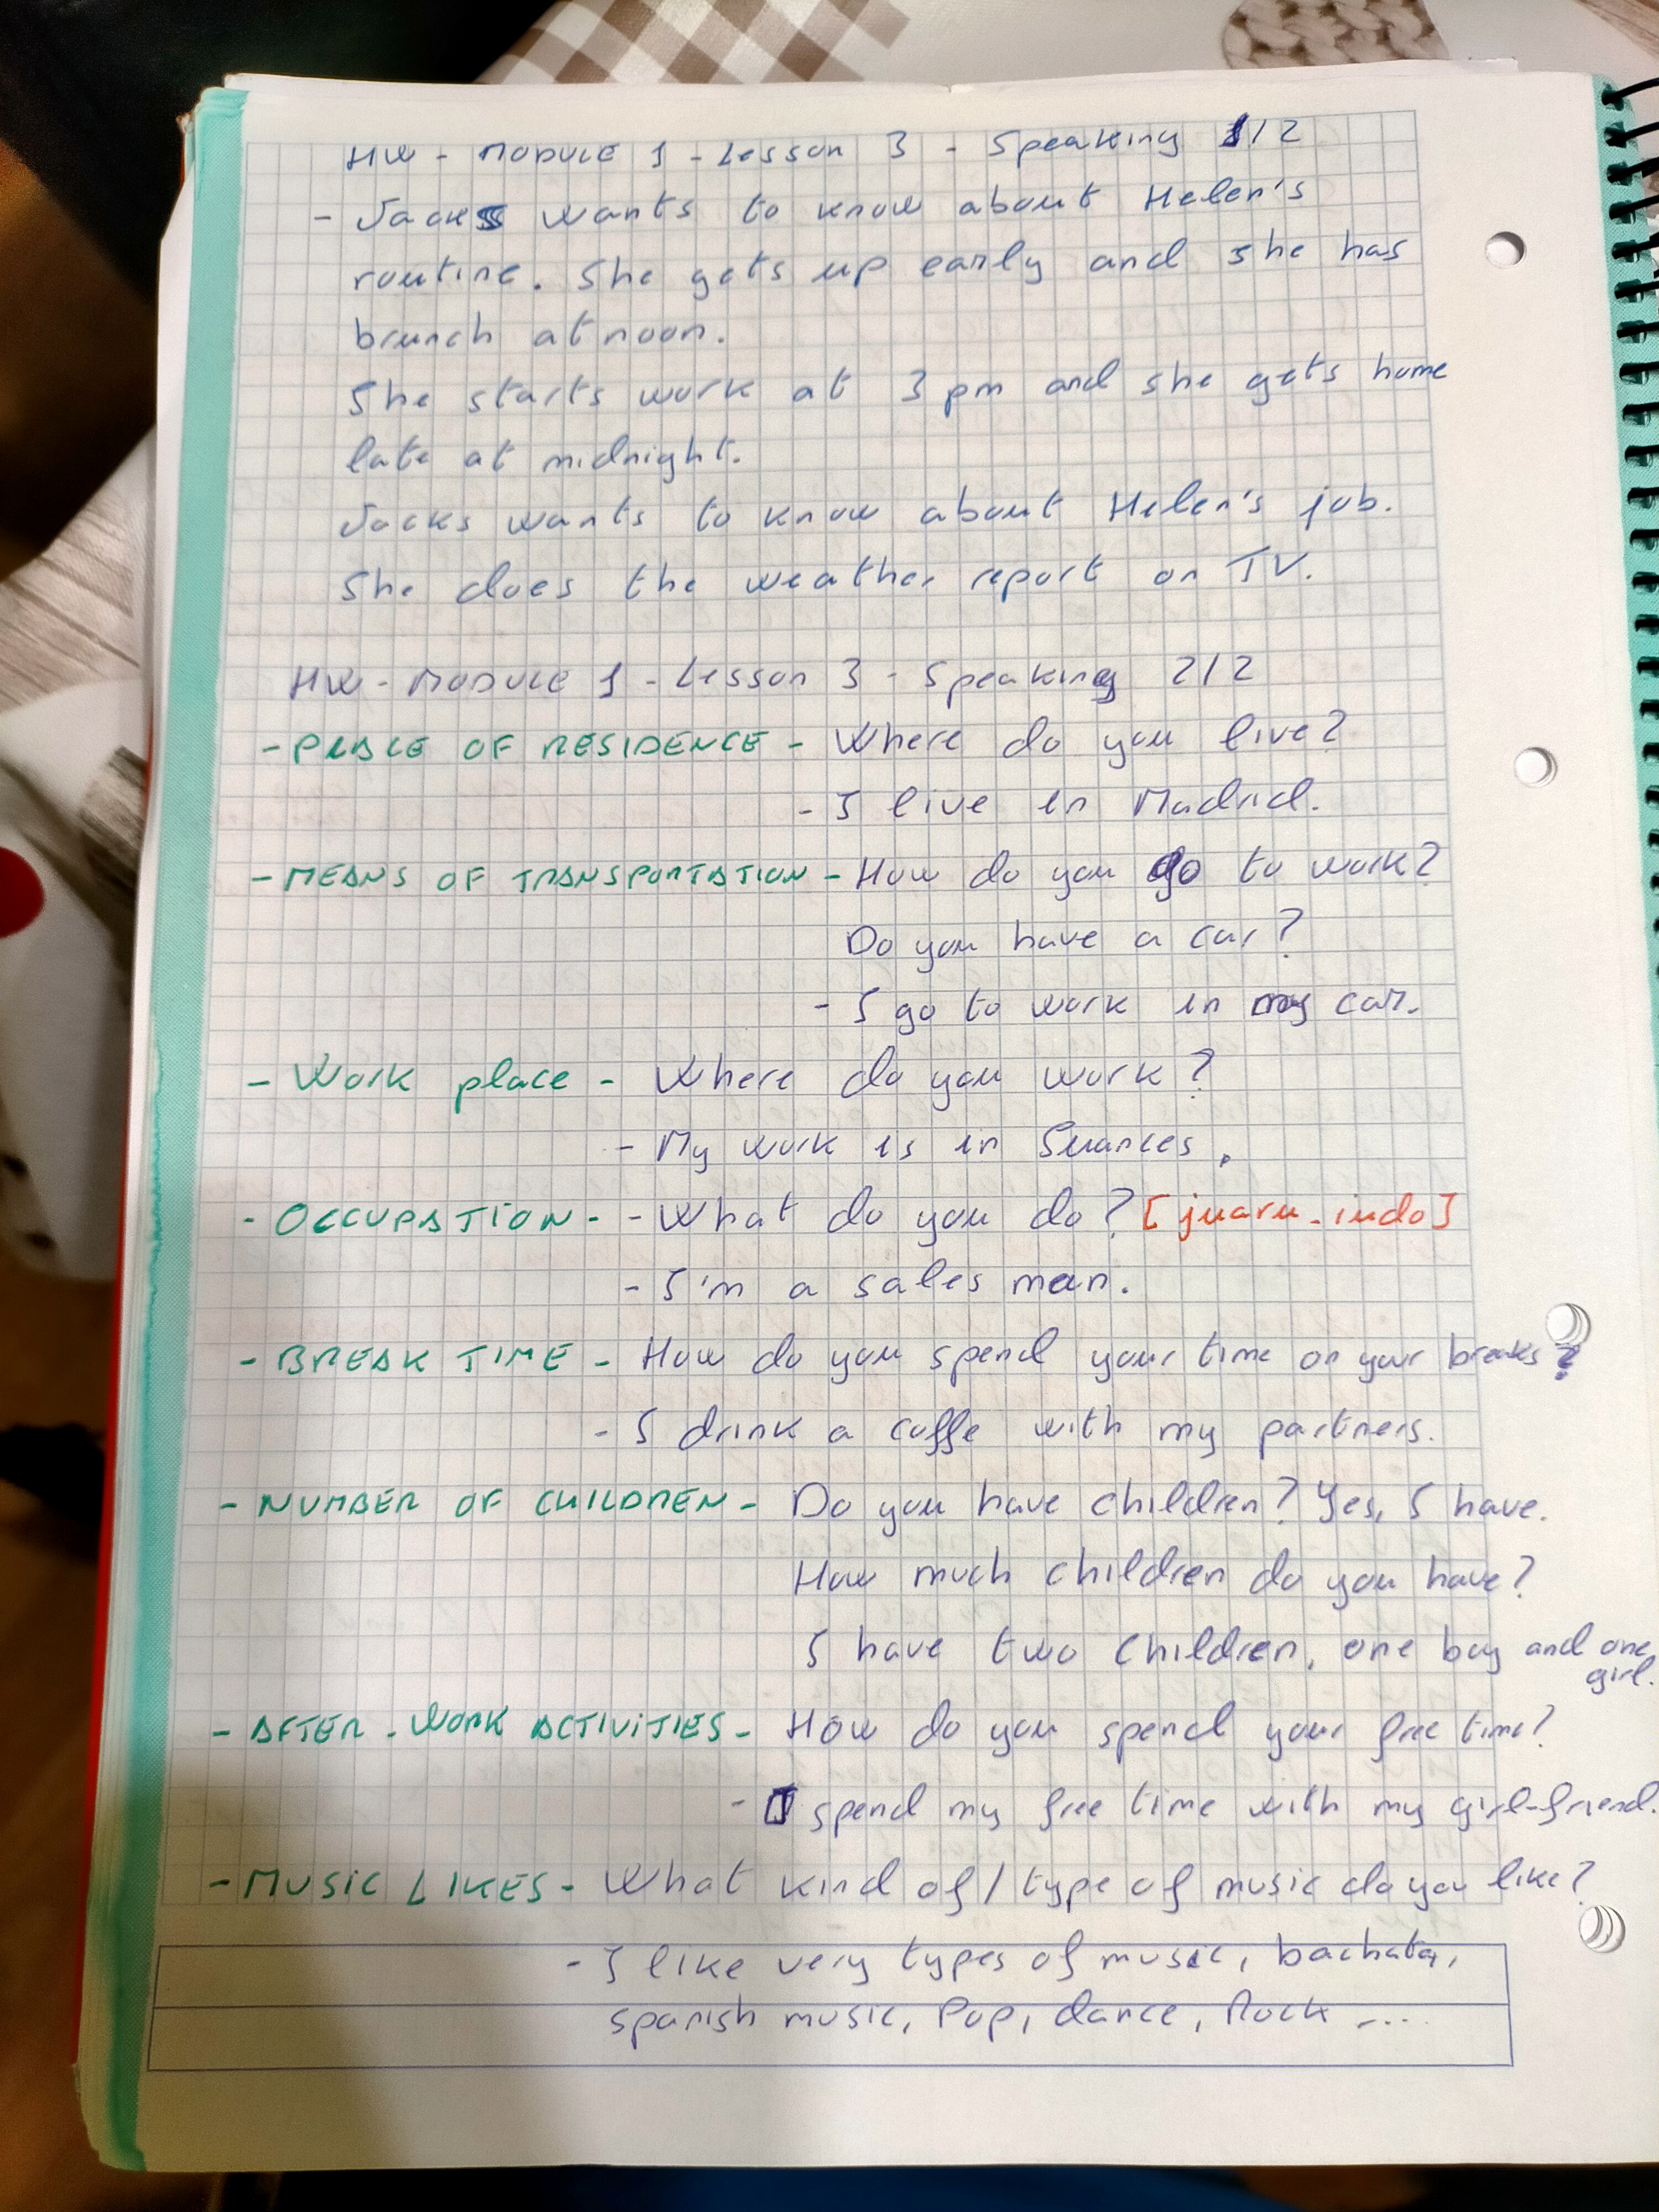 HW - MODULE 1 - Lesson 3 - Speaking 1/2
- Jacks wants to know about Helen's
routine. She gets up early and she has
brunch at noon.
She starts work at 3 pm and she gets home
late at midnight.
Jacks wants to know about Helen's job.
She does the weather report on TV.
HW - MODULE 1 - Lesson 3 - Speaking 2/2
- PLACE OF RESIDENCE - Where do you live?
- I live in Madrid.
- MEANS OF TRANSPORTATION - How do you go to work?
Do you have a car?
- I go to work in my car.
- Work place - Where do you work?
- My work is in Suances.
- OCCUPATION - - What do you do? [juaru_indo]
- I'm a sales man.
- BREAK TIME - How do you spend your time on your breaks?
- I drink a coffe with my partners.
- NUMBER OF CHILDREN - Do you have children? Yes, I have.
How much children do you have?
I have two children, one boy and one
girl.
- AFTER - WORK ACTIVITIES - How do you spend your free time?
- I spend my free time with my girl-friend.
- MUSIC LIKES - What kind of / type of music do you like?
- I like very types of music, bachata,
spanish music, Pop, dance, Rock ....